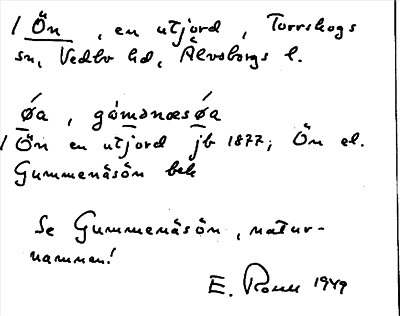 / Ön , en utjord , Torrskogs
sn, Vedbo hd, Älvsborgs l.
øa , gómənæsøa
/ Ön en utjord jb 1877; Ön el.
Gummenäsön bek
Se Gummenäsön , natur-
namnen!
E. 1949